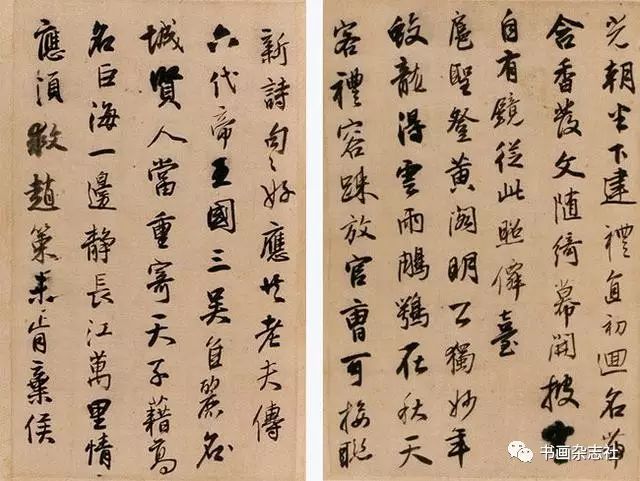 朝坐下建禮直初迴名
含香發文隨綺幕開披雲
自有鏡從此照僊臺
扈聖登黃閣明公獨妙年
蛟龍得雲雨鵰鶚在秋天
客禮容踈放官曹可接聯
新詩句〻好應任老夫傳
六代帝王國三吳自麗名
城賢人當重寄天子藉高
名巨海一邊靜長江萬里情
應須救趙策未肯棄侯
书画杂志社